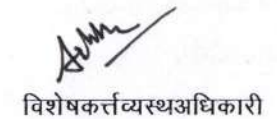 विशेषकर्त्तव्यस्थअधिकारी